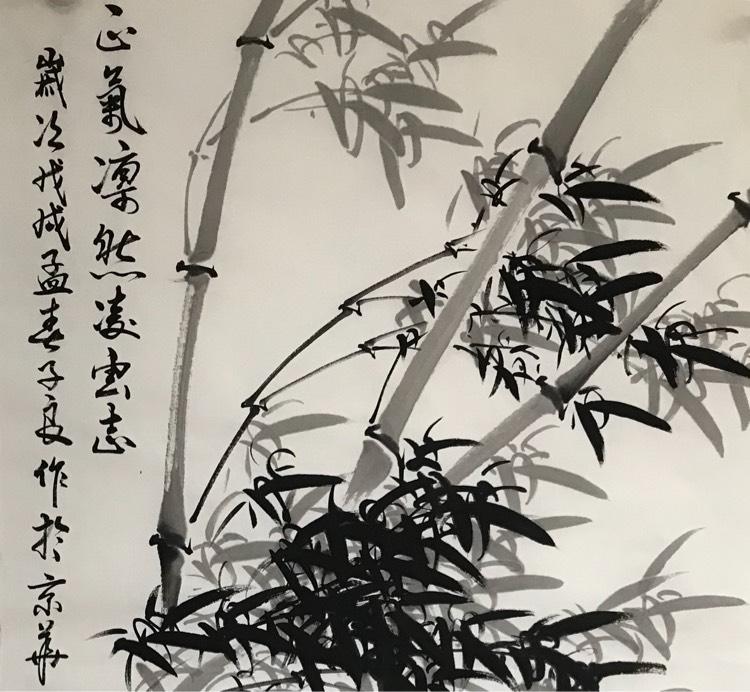 正氣凛然凌雲志
歲次戊戌孟春子良作於京華